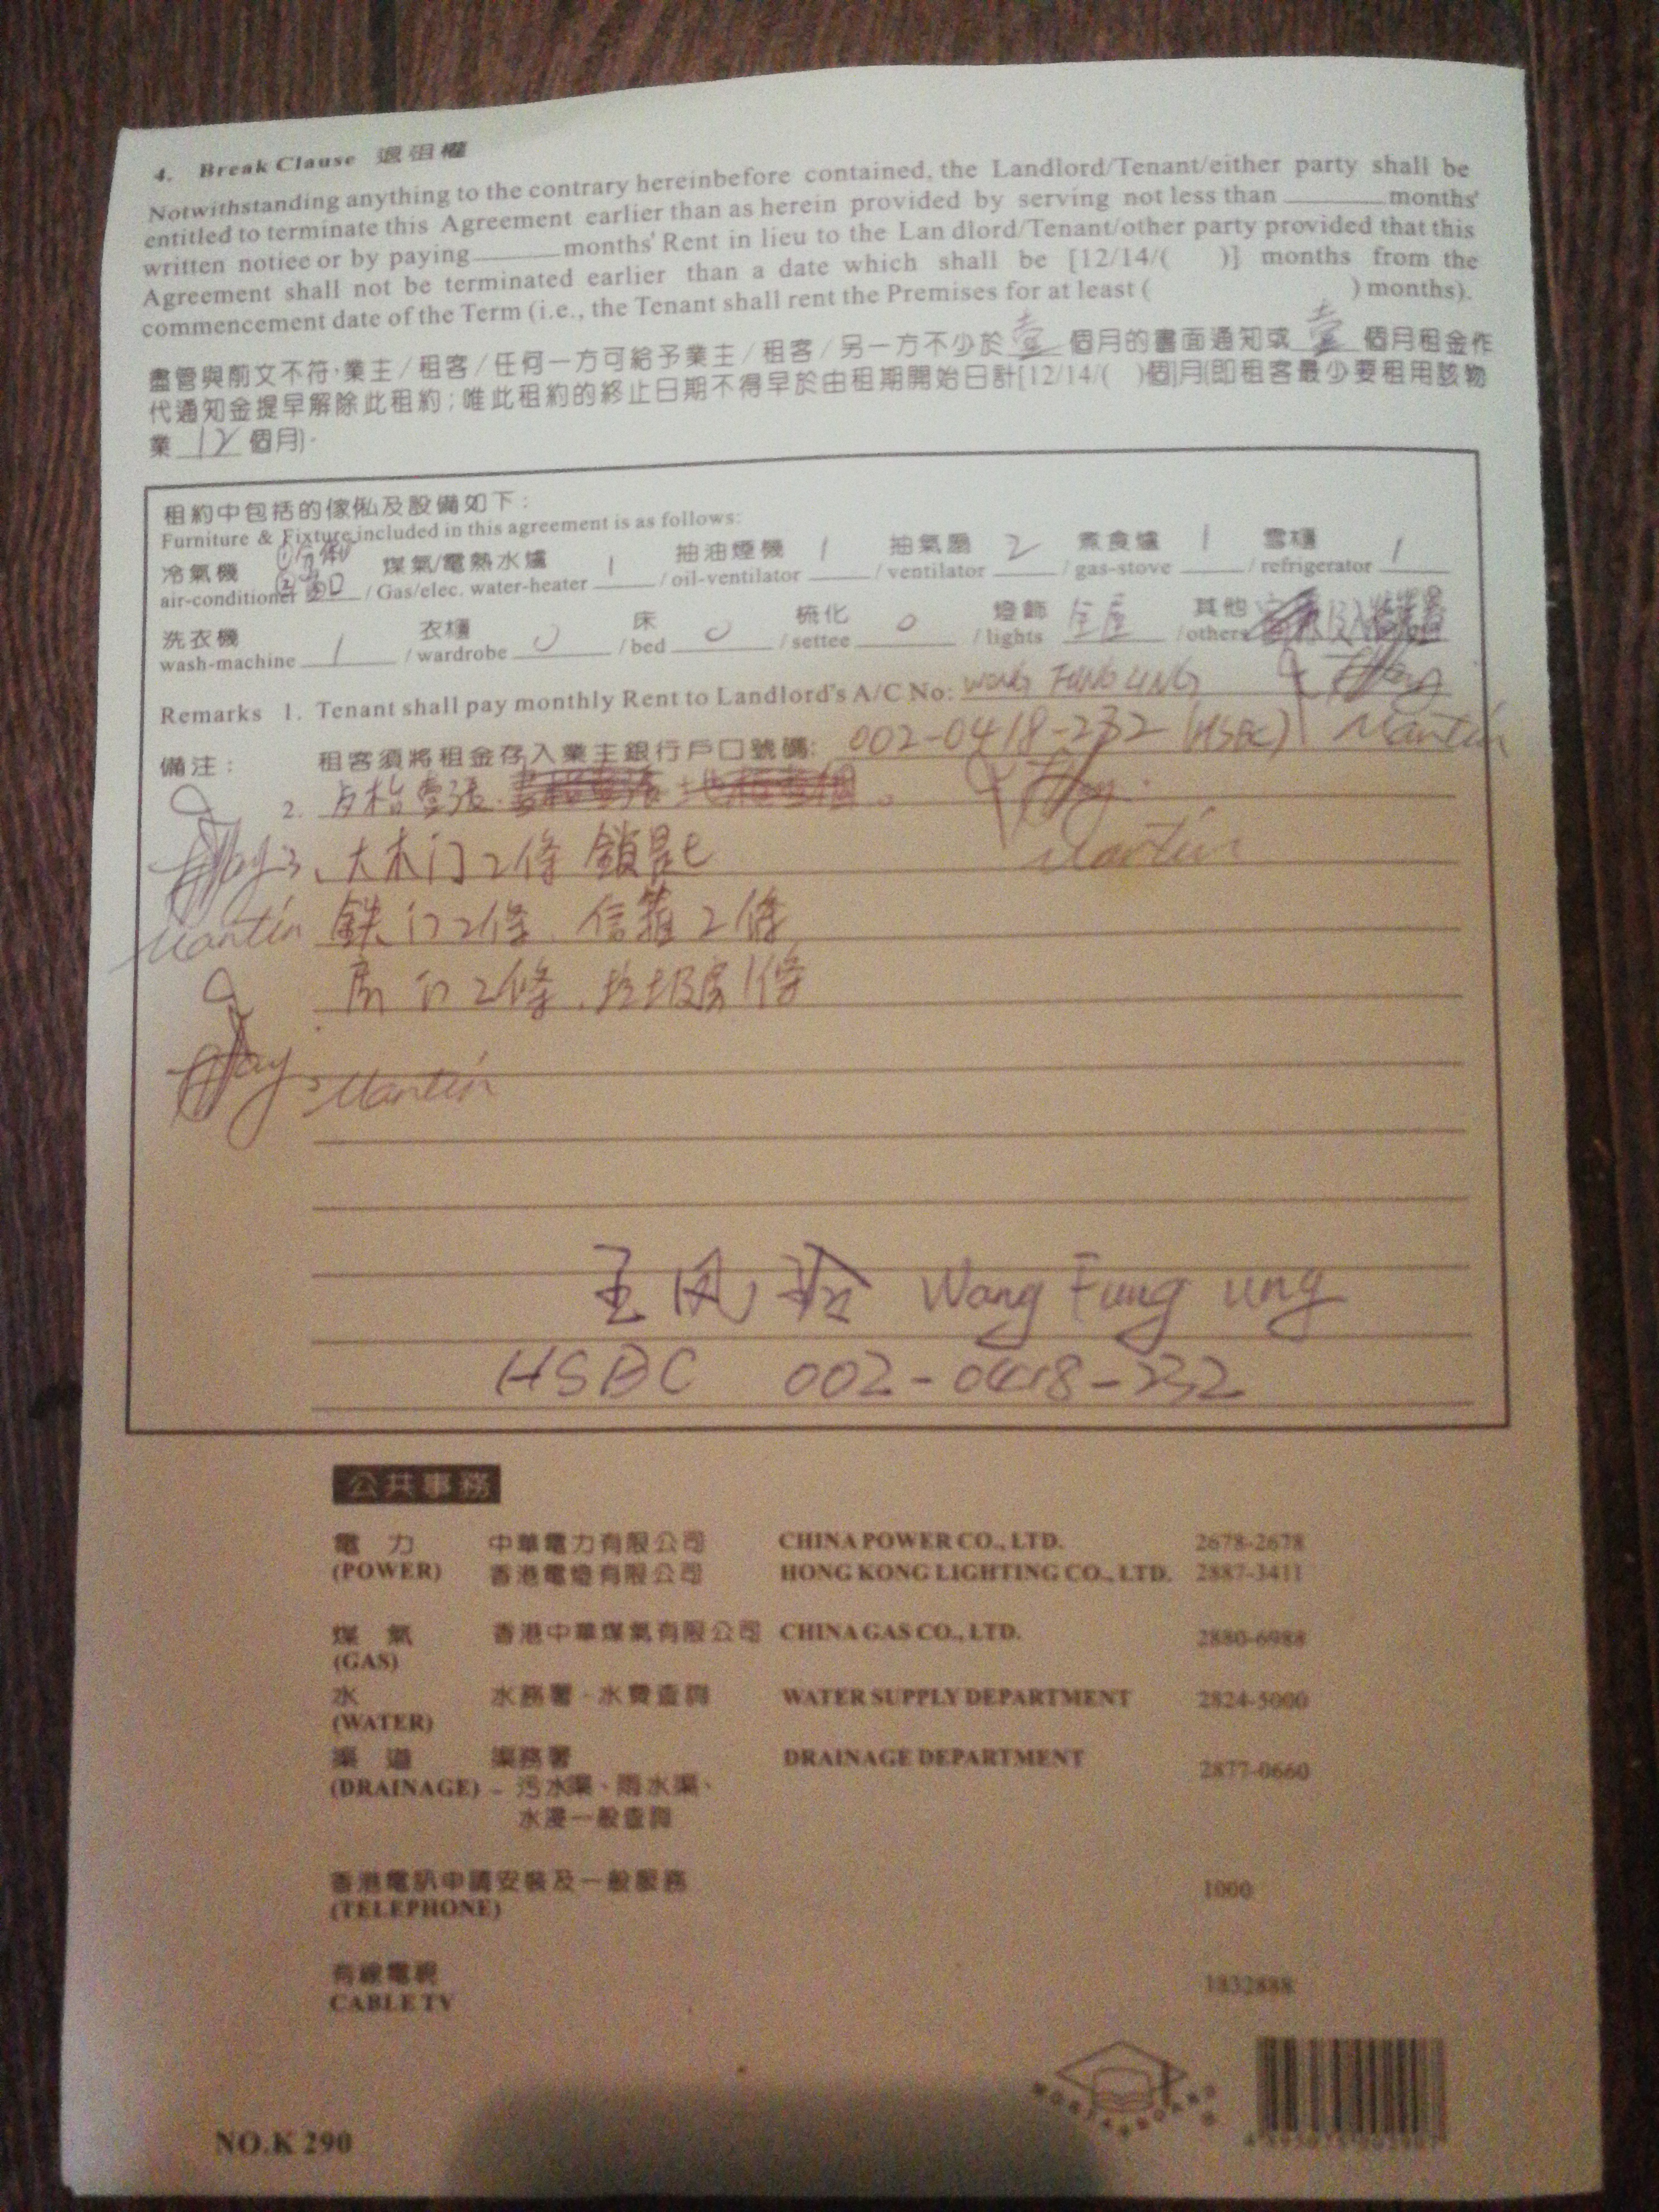 4. Break Clause 退租權
Notwithstanding anything to the contrary hereinbefore contained, the Landlord/Tenant/either party shall be
entitled to terminate this Agreement earlier than as herein provided by serving not less than ______ months'
written notice or by paying ______ months' Rent in lieu to the Lan dlord/Tenant/other party provided that this
Agreement shall not be terminated earlier than a date which shall be [12/14/( )] months from the
commencement date of the Term (i.e., the Tenant shall rent the Premises for at least ( ) months).
盡管與前文不符,業主/租客/任何一方可給予業主/租客/另一方不少於 壹 個月的書面通知或 壹 個月租金作
代通知金提早解除此租約;唯此租約的終止日期不得早於由租期開始日計[12/14/( )個]月(即租客最少要租用該物
業 12 個月)。
租約中包括的傢俬及設備如下:
Furniture & Fixture included in this agreement is as follows:
冷氣機 煤氣/電熱水爐 1 抽油煙機 1 抽氣扇 2 煮食爐 1 雪櫃 1
air-conditioner / Gas/elec. water-heater / oil-ventilator / ventilator / gas-stove / refrigerator
洗衣機 衣櫃 床 梳化 燈飾 其他
wash-machine 1 / wardrobe 0 / bed 0 / settee 0 / lights 全屋 / others
Remarks 1. Tenant shall pay monthly Rent to Landlord's A/C No: WONG FUNG LING
備注: 租客須將租金存入業主銀行戶口號碼: 002-0418-232 (HSBC) Martin
2. 壹張
Martin
3、大木门2條 鎖匙
Martin 鉄门2條、信箱2條
房门2條、垃圾房1條
Martin
王凤玲 Wang Fung Ling
HSBC 002-0418-232
公共事務
電力 中華電力有限公司 CHINA POWER CO., LTD. 2678-2678
(POWER) 香港電燈有限公司 HONG KONG LIGHTING CO., LTD. 2887-3411
煤氣 香港中華煤氣有限公司 CHINA GAS CO., LTD. 2880-6988
(GAS)
水 水務署-水費查詢 WATER SUPPLY DEPARTMENT 2824-5000
(WATER)
渠道 渠務署 DRAINAGE DEPARTMENT 2877-0660
(DRAINAGE) - 污水渠、雨水渠、
水浸一般查詢
香港電訊申請安裝及一般服務 1000
(TELEPHONE)
有線電視 1832888
CABLE TV
NO.K 290